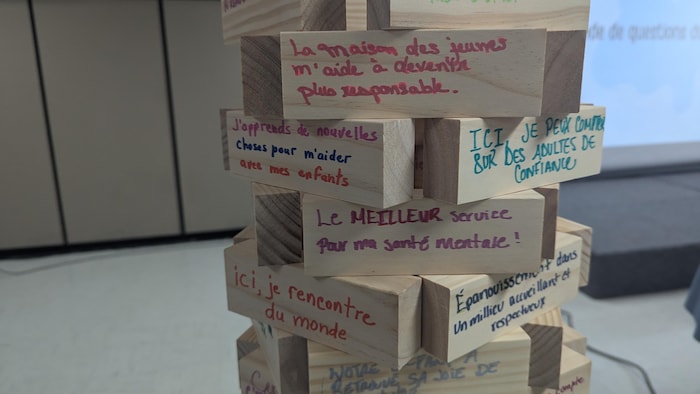 de de questions
La maison des jeunes
m'aide à devenir
plus responsable.
J'apprends de nouvelles
choses pour m'aider
avec mes enfants
ICI, JE PEUX COMPTER
SUR DES ADULTES DE
CONFIANCE
Le MEILLEUR service
pour ma santé mentale!
ici, je rencontre
du monde
Épanouissement dans
un millieu accueillant et
respectueux
NOTRE A
RETROUVÉ SA JOIE DE
compte